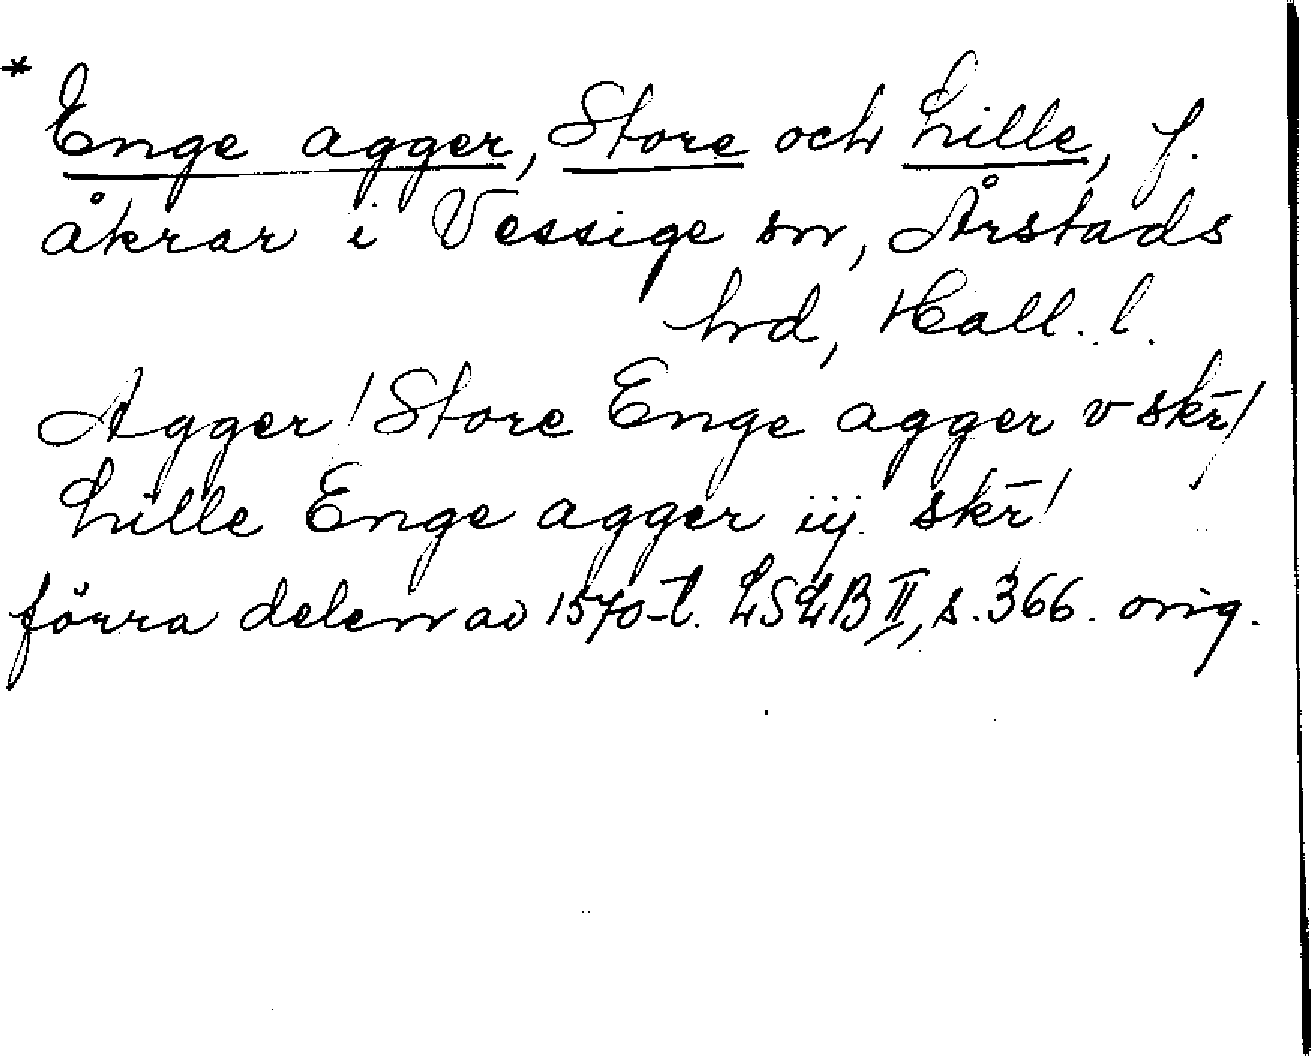 * Enge agger, Store och Lille, f.
åkrar i Vessige sn, Årstads
hd, Hall. l.
Agger / Store Enge agger v skr̄ /
Lille Enge agger iij. skr̄ /
förra delen av 1570-t. LSLB II, s. 366. orig.